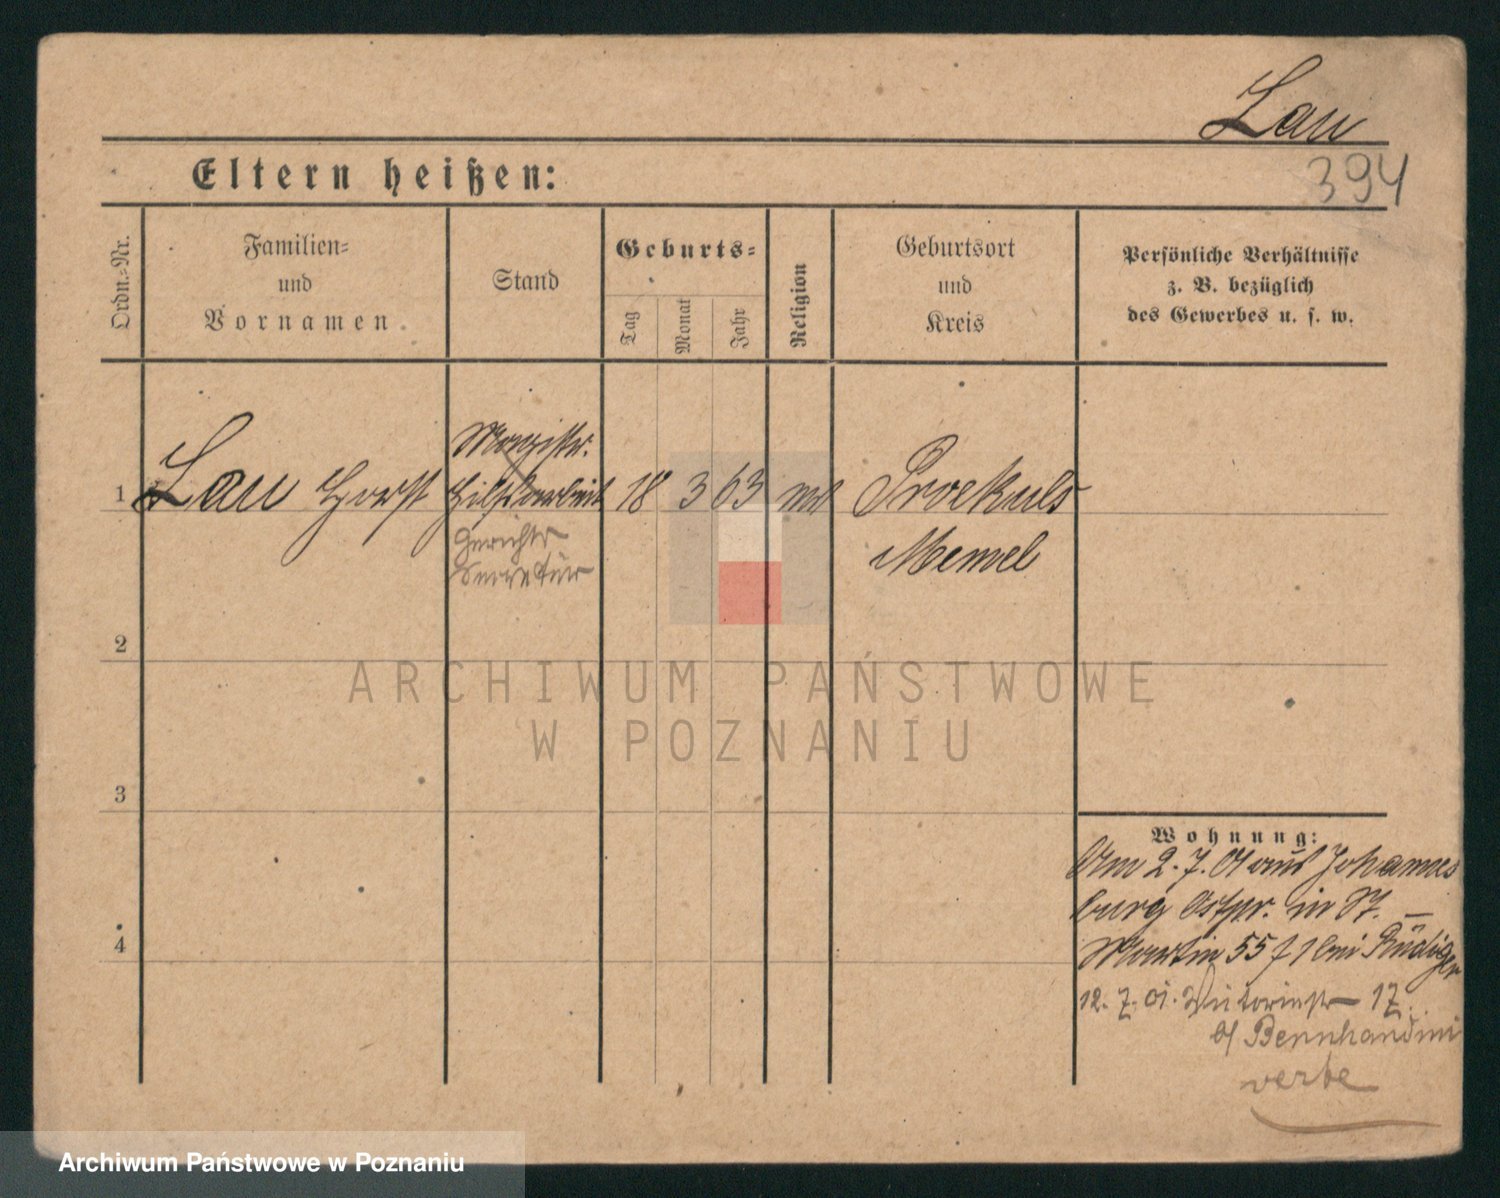 Lau
394
Eltern heißen:
Ordn.-Nr.
Familien-
und
Vornamen.
Stand
Geburts-
Tag
Monat
Jahr
Religion
Geburtsort
und
Kreis
Persönliche Verhältnisse
z. B. bezüglich
des Gewerbes u. s. w.
1 Lau Horst
Magistr.
Hilfsarbeit
Gerichts
Secretär
18 3 63
Proekuls
Memel
2
3
4
ARCHIWUM PAŃSTWOWE
W POZNANIU
Wohnung:
Am 2.7.01 aus Johannes
burg Ostpr. in St. –
Martin 55 bei Rüdiger
12.7.01. 17.
Archiwum Państwowe w Poznaniu